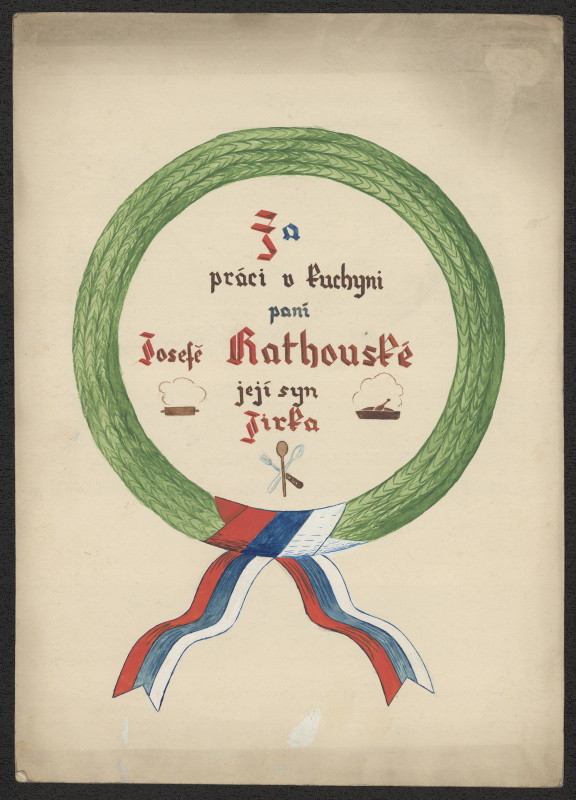 Za
práci v kuchyni
paní
Josefě Rathouské
její syn
Jirka